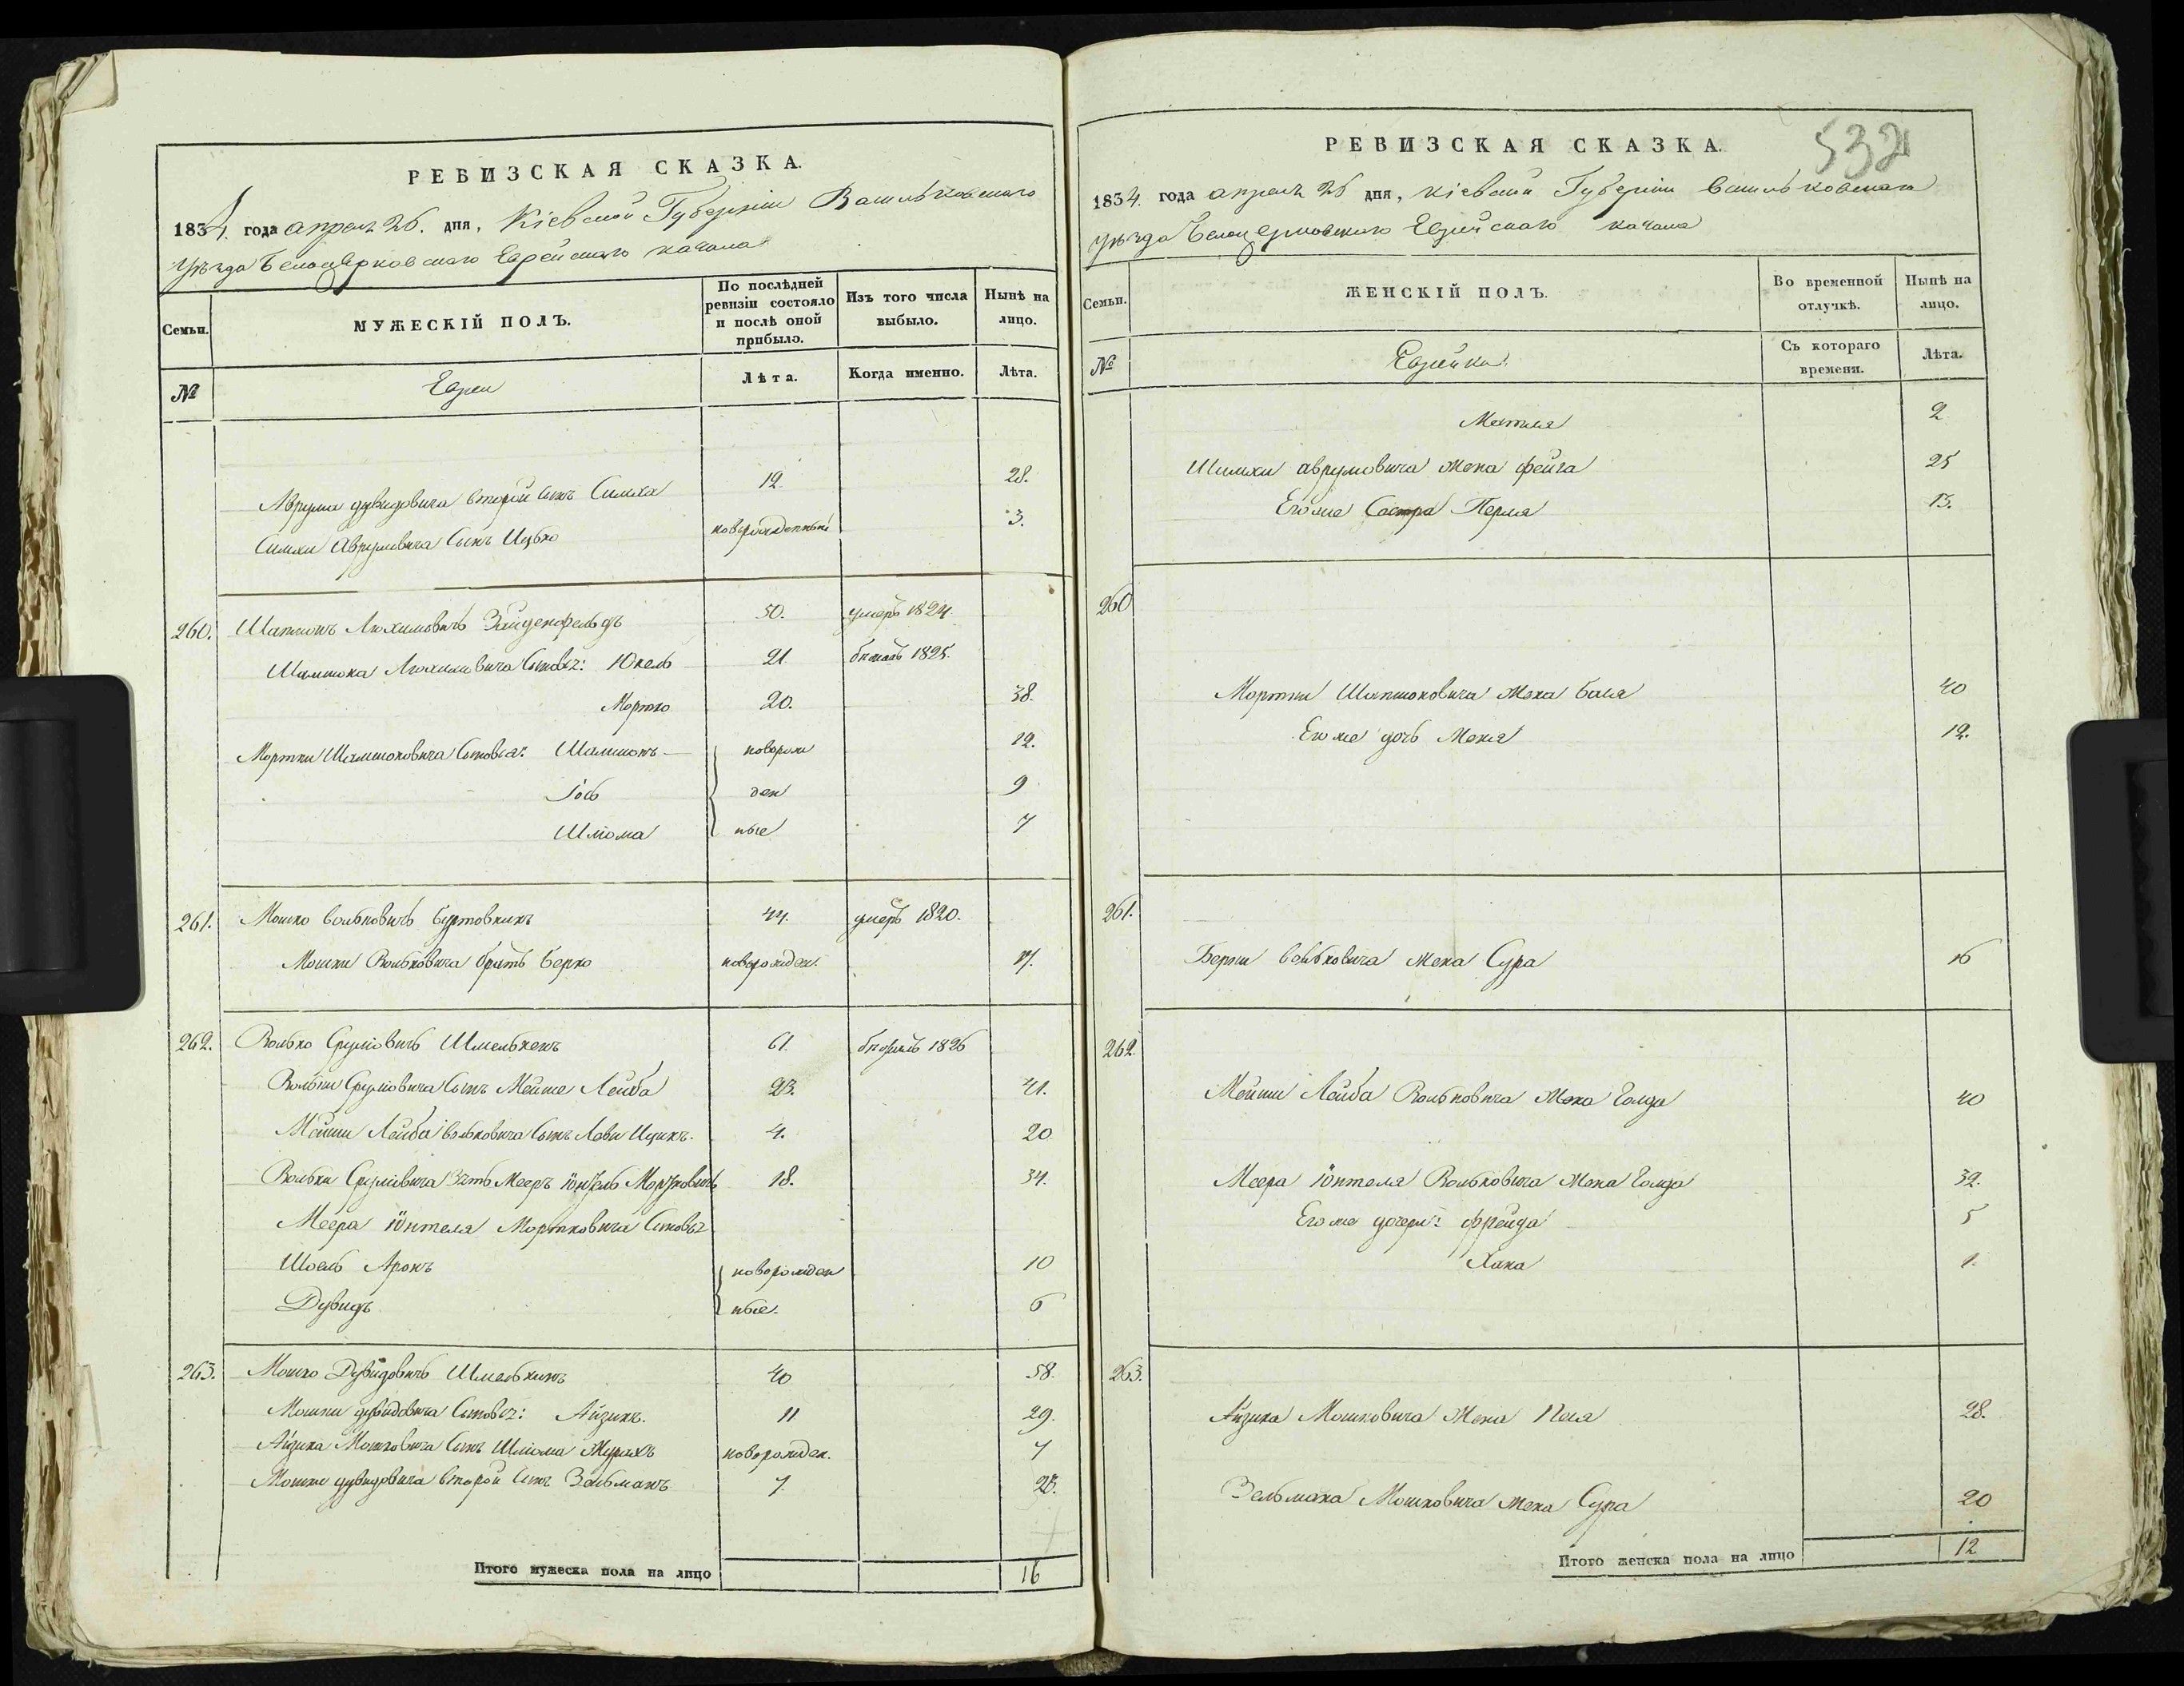 РЕВИЗСКАЯ СКАЗКА.
1834. года апреля 26. дня, Кіевской Губерніи Васильковскаго
уѣзда Белоцерковскаго Еврейскаго кагала
Семьи.
МУЖЕСКІЙ ПОЛЪ.
По послѣдней ревизіи состояло и послѣ оной прибыло.
Изъ того числа выбыло.
Нынѣ на лицо.
№
Евреи
Лѣта.
Когда именно.
Лѣта.
Аврума Дувидовича второй сынъ Симха 12. 28.
Симхи Аврумовича сынъ Ицько новорожденный 3.
260. Шапшонъ Зайденфельдъ 50. умеръ 1824
Сыновья: Юкель 21. бѣжалъ 1825.
Мортко 20. 38.
Мортки Шамшоновича Сыновья: Шамшонъ новорож 12.
Іось ден 9
Шліома ные 7
261. Мошко Вольковичъ 44. умеръ 1820.
Мошки Вольковича братъ Берко новорожден. 17.
262. Волько Сруліовичъ Шмелькенъ 61. 1826
Вольки Сруліовича Сынъ Мейше Лейба 23. 41.
Мейши Лейба Вольковича Сынъ Леви Ицикъ. 4. 20
Вольки Сруліовича Зять Мееръ Юнтель Мортковичъ 18. 34.
Меера Юнтеля Мортковича Сыновья
Шоель Аронъ новорожден 10
Дувидъ ные. 6
263. Мошко Дувидовичъ Шмелькинъ 40 58.
Мошки Дувидовича Сыновья: Айзикъ. 11 29.
Айзика Мошковича Сынъ Шліома новорожден. 7
Мошки Дувидовича второй Сынъ Зельманъ 7. 23.
Итого мужеска пола на лицо 16
532
РЕВИЗСКАЯ СКАЗКА.
1834. года апреля 26 дня, Кіевской Губерніи Васильковскаго
уѣзда Белоцерковскаго Еврейскаго кагала
Семьи.
ЖЕНСКІЙ ПОЛЪ.
Во временной отлучкѣ.
Нынѣ на лицо.
№
Еврейки
Съ котораго времени.
Лѣта.
Матля 2
Шимхи Аврумовича жена Фейга 25
Его же Сестра Перля 13.
260
Мортки Шапшоновича жена Бася 40
Его же дочь Меня 12.
261.
Берки Вольковича жена Сура 16
262.
Мейши Лейба Вольковича жена Голда 40
Меера Юнтеля Вольковича жена Голда 32.
Его же дочери: Фрейда 5
Хана 1.
263.
Айзика Мошковича жена Песя 28.
Зельмана Мошковича жена Сура 20
Итого женска пола на лицо 12